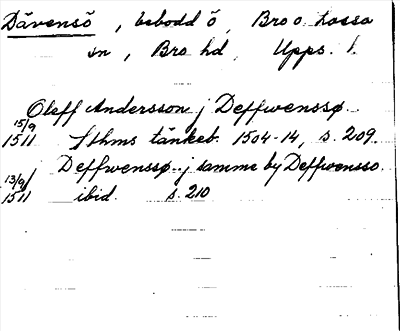 Dävensö, bebodd ö, Bro o. Lossa
sn, Bro hd, Upps. l.
Oleff Andersson j Deffwenssø
15/9
1511 Sthms tänkeb. 1504-14, s. 209.
Deffwenssø.. j samme by Deffwensso
13/9
1511 ibid. s. 210